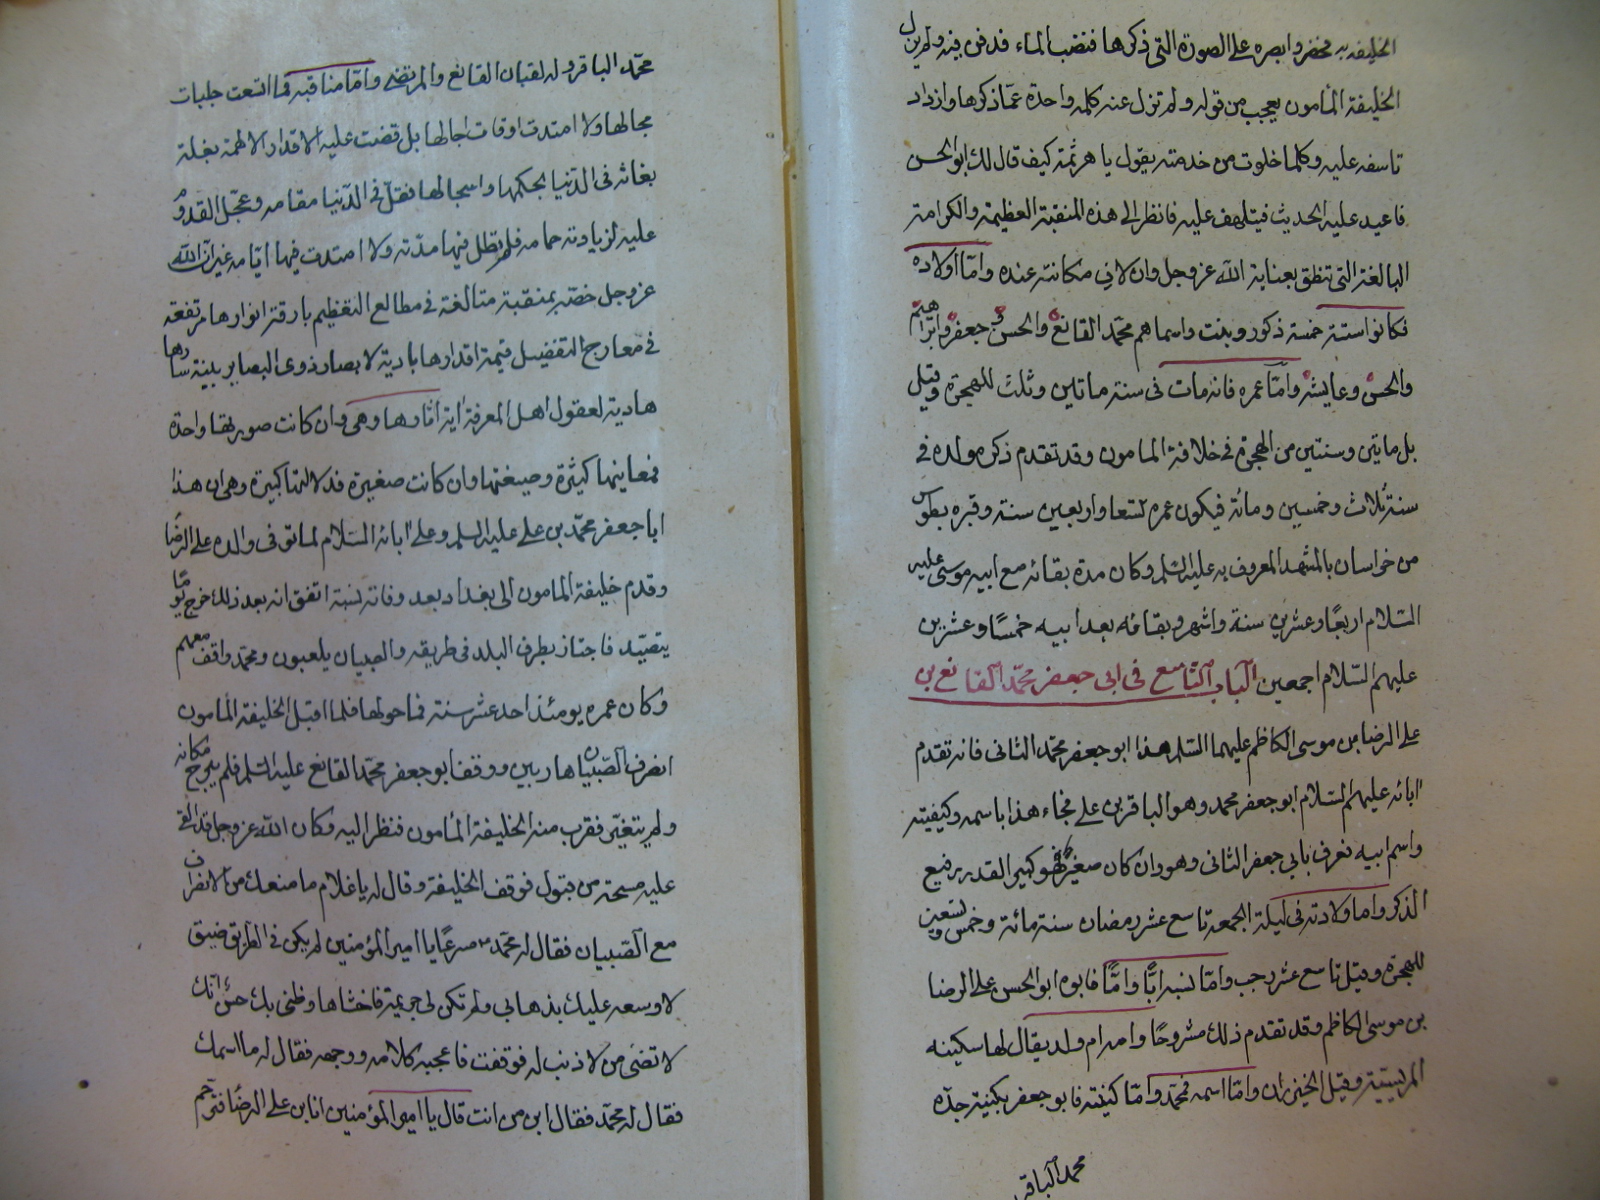 الخليفة به فحفر وابصره على الصورة التي ذكرها فنضب الماء فدفن فيه ولم يزل
الخليفة المأمون يعجب من قوله ولم تزل عنه كلمة واحدة عما ذكرها وازداد
تاسفه عليه وكلما خلوت من خدمته يقول يا هرثمة كيف قال لك ابو الحسن
فاعيد عليه الحديث فيتلهف عليه فانظر الى هذه المنقبة العظيمة والكرامة
البالغة التي تنطق بعناية الله عز وجل وان لا في مكانته عنده واما اولاده
فكانوا ستة خمسة ذكور وبنت واسماهم محمد القانع والحسن وجعفر وابراهيم
والحسن وعايشه واما عمره فانه مات في سنة ماتين وثلث للهجرة وقيل
بل ماتين وسنتين من الهجرة في خلافة المامون وقد تقدم ذكر مولده في
سنة ثلاث وخمسين ومائة فيكون عمره تسعا واربعين سنة وقبره بطوس
من خراسان بالمشهد المعروف به عليه السلم وكان مدة بقائه مع ابيه موسى عليه
السلام اربعًا وعشرين سنة واشهر وبقائه بعد ابيه خمسًا وعشرين
عليهم السلام اجمعين الباب التاسع في ابي جعفر محمد القانع بن
على الرضا بن موسى الكاظم عليهما السلم هذا ابو جعفر محمد الثانى فانه تقدم
ابائه عليهم السلام ابو جعفر محمد وهو الباقر بن على فجاء هذا باسمه وكنيته
واسم ابيه فعرف بابي جعفر الثانى وهو وان كان صغير فهو كبير القدر رفيع
الذكر واما ولادته فى ليلة الجمعة تاسع عشر رمضان سنة مائة وخمس وتسعين
للهجرة وقيل تاسع عشر رجب واما نسبه ابًا وامًا فابوه ابو الحسن على الرضا
بن موسى الكاظم وقد تقدم ذلك مشروحًا وامه ام ولد يقال لها سكينه
المريسية وقيل الخيزران واما اسمه فمحمد واما كنيته فابو جعفر بكنية جده
محمد الباقر
محمد الباقر وله لقبان القانع والمرتضى واما مناقبه فما اتسعت حلبات
مجالها ولا امتدت اوقات اجالها بل قضت عليه الاقدار الالهية بقلة
بقائه فى الدنيا بحكمها واسجالها فقل في الدنيا مقامه وعجل القدوم
عليه لزيادته حمامه فلم تطل فيها مدته ولا امتدت فيها ايامه غير ان الله
عز وجل خصه بمنقبة متالقة في مطالع التعظيم بارقة انوارها مرتفعة
فى معارج التفضيل قيمة اقدارها بادية لابصار ذوى البصاير بينة سارها
هادية لعقول اهل المعرفة اية اثارها وهى وان كانت صورتها واحدة
فمعاينها كثيرة وصيغتها وان كانت صغيرة فدلالتها كبيرة وهى ان هذا
ابا جعفر محمد بن على عليه السلم وعلى ابائه السلام لما توفى والده على الرضا
وقدم خليفة المامون الى بغداد بعد وفاته بسنة اتفق انه بعد ذلك خرج يومًا
يتصيد فاجتاز بطرف البلد فى طريقه والصبيان يلعبون ومحمد واقف معهم
وكان عمره يومئذ احد عشر سنة فما حولها فلما اقبل الخليفة المأمون
انصرف الصبيان هاربين ووقف ابو جعفر محمد القانع عليه السلم فلم يبرح مكانه
ولم يتغير فقرب منه الخليفة المأمون فنظر اليه وكان الله عز وجل قد القى
عليه مسحة من قبول فوقف الخليفة وقال له يا غلام ما منعك من الانصراف
مع الصبيان فقال له محمد مسرعًا يا امير المؤمنين لم يكن في الطريق ضيق
لاوسعه عليك بذهابي ولم تكن لي جريمة فاخشاها وظنى بك حسن انك
لا تضى من لا ذنب له فوقفت فاعجبه كلامه ووجهه فقال له ما اسمك
فقال له محمد فقال ابن من انت قال يا امير المؤمنين انا بن على الرضا فترحم